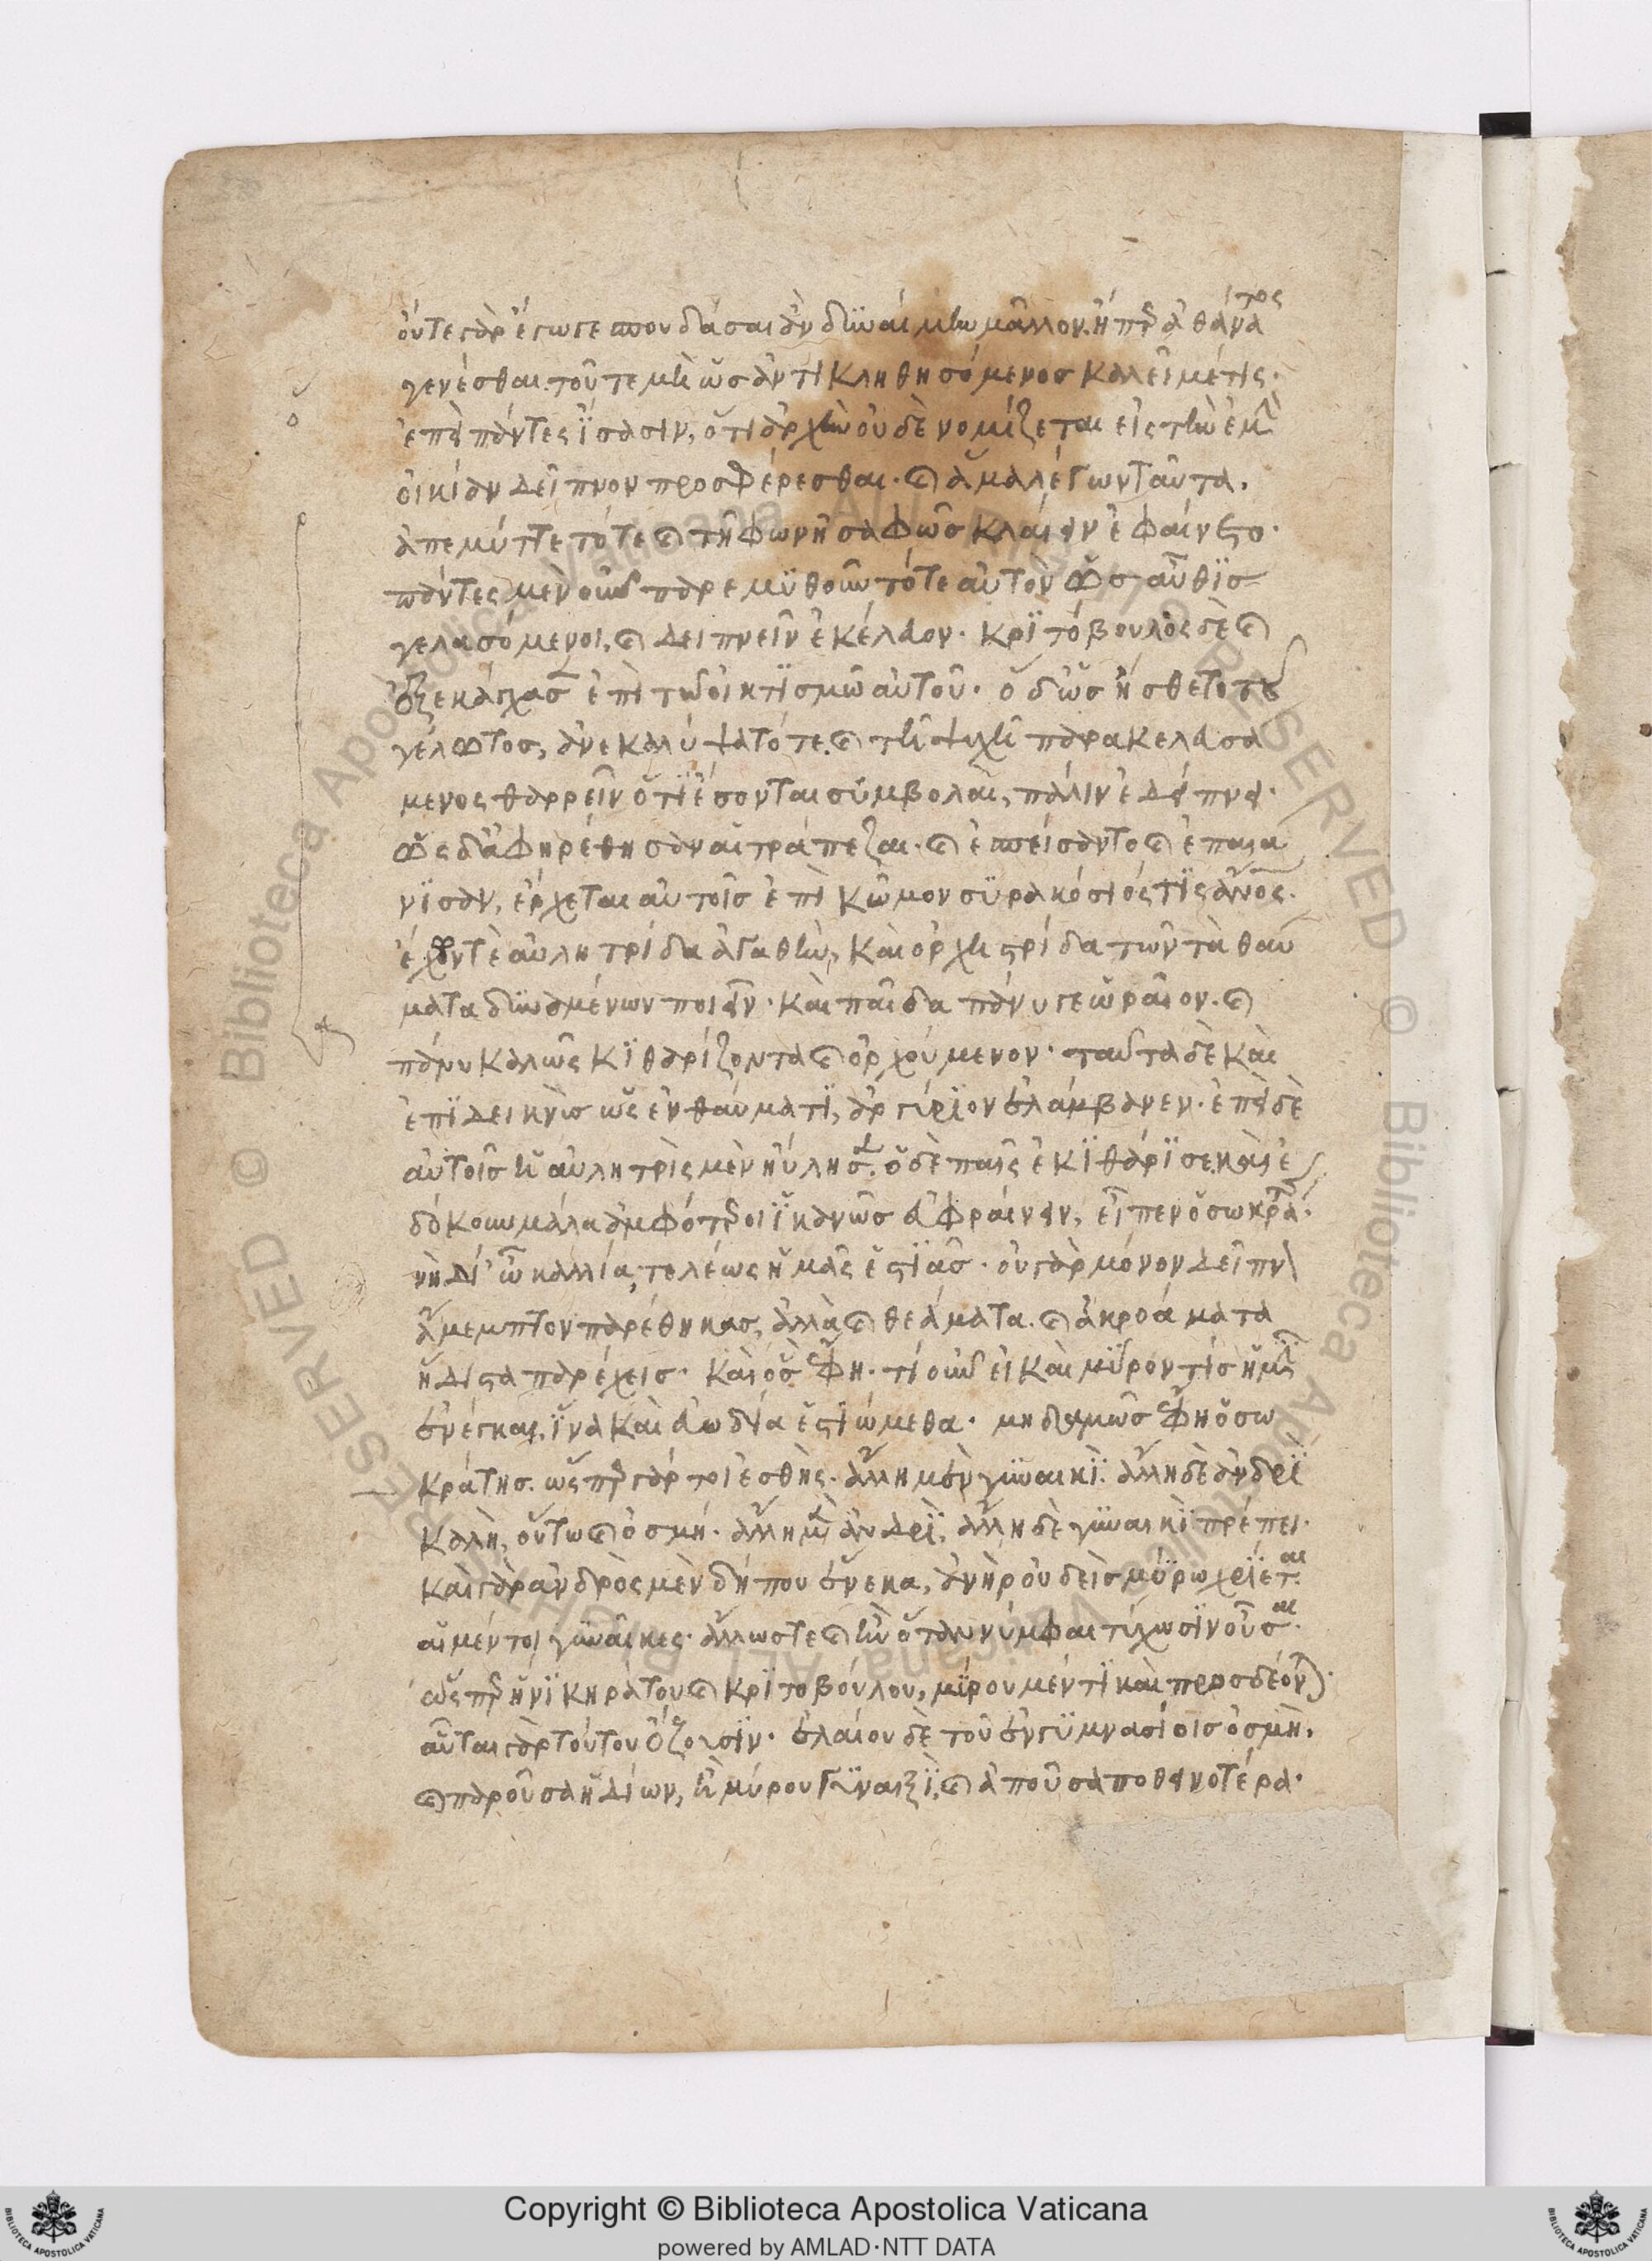 οὔτε γὰρ ἔγωγε σπουδάσαι ἂν δυναίμην μᾶλλον. ἤπερ ἀθάνατος
γενέσθαι. οὔτε μὴν ὡς ἀντικληθησόμενος καλεῖ μέ τις·
ἐπεὶ πάντες ἴσασιν, ὅτι ἀρχὴν οὐδὲ νομίζεται εἰς τὴν ἐμὴν
οἰκίαν δεῖπνον προσφέρεσθαι. καὶ ἅμα λέγων ταῦτα.
ἀπεμύττετό τε καὶ τῇ φωνῇ σαφῶς κλαίειν ἐφαίνετο·
πάντες μὲν οὖν παρεμυθοῦντό τε αὐτὸν ὡς αὖθις
γελασόμενοι, καὶ δειπνεῖν ἐκέλευον. Κριτόβουλος δὲ καὶ
ἐξεκάγχασεν ἐπὶ τῷ οἰκτισμῷ αὐτοῦ. ὁ δ' ὡς ᾔσθετο τοῦ
γέλωτος, ἀνεκαλύψατό τε. καὶ τῇ ψυχῇ παρακελευσά
μενος θαρρεῖν ὅτι ἔσονται σύμβολαι, πάλιν ἐδείπνει·
ὡς δ' ἀφῃρέθησαν αἱ τράπεζαι. καὶ ἐσπείσαντο καὶ ἐπαιά
νισαν, ἔρχεται αὐτοῖς ἐπὶ κῶμον συρακόσιός τις ἄνθρωπος.
ἔχων τὲ αὐλητρίδα ἀγαθὴν, καὶ ὀρχηστρίδα τῶν τὰ θαύ
ματα δυναμένων ποιεῖν. καὶ παῖδα πάνυ γε ὡραῖον. καὶ
πάνυ καλῶς κιθαρίζοντα καὶ ὀρχούμενον. ταῦτα δὲ καὶ
ἐπιδεικνὺς ὡς ἐν θαύματι, ἀργύριον ἐλάμβανεν. ἐπεὶ δὲ
αὐτοῖς ἡ αὐλητρὶς μὲν ηὔλησεν. ὁ δὲ παῖς ἐκιθάρισε. καὶ ἐ
δόκουν μάλα ἀμφότεροι ἱκανῶς εὐφραίνειν, εἶπεν ὁ σωκράτης.
νὴ Δί' ὦ καλλία, τολέως ἡμᾶς ἑστιᾷς. οὐ γὰρ μόνον δεῖπνον
ἄμεμπτον παρέθηκας, ἀλλὰ καὶ θεάματα. καὶ ἀκροάματα
ἥδιστα παρέχεις. καὶ ὃς ἔφη. τί οὖν εἰ καὶ μύρον τίς ἡμῖν
ἐνέγκαι, ἵνα καὶ εὐωδία ἑστιώμεθα. μηδαμῶς ἔφη ὁ σω
κράτης. ὥσπερ γάρ τοι ἐσθὴς. ἄλλη μὲν γυναικὶ. ἄλλη δὲ ἀνδρὶ
καλὴ, οὕτω καὶ ὀσμή. ἄλλη μὲν ἀνδρὶ, ἄλλη δὲ γυναικὶ πρέπει.
καὶ γὰρ ἀνδρὸς μὲν δήπου ἕνεκα, ἀνὴρ οὐδεὶς μύρῳ χρίεται.
αἱ μέντοι γυναῖκες. ἄλλως τε καὶ ἢν ὅταν νύμφαι τύχωσιν οὖσαι.
ὥσπερ ἡ νικηράτου καὶ κριτοβούλου, μύρου μέν τι καὶ προσδέονται.
αὗται γὰρ τούτου ὄζουσιν. ἐλαίου δὲ τοῦ ἐν γυμνασίοις ὀσμὴ,
καὶ παροῦσα ἡδίων, ἢ μύρου γυναιξὶ, καὶ ἀποῦσα ποθεινοτέρα.